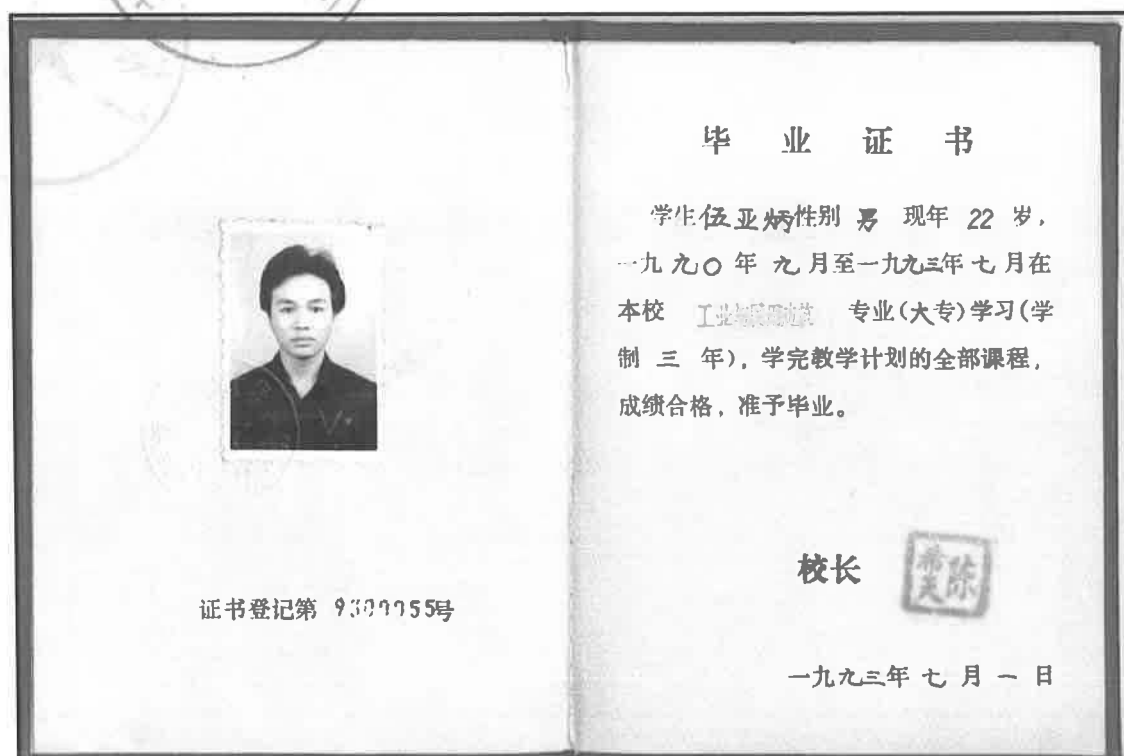 证书登记第 9300055号
毕业证书
学生伍亚炳性别 男 现年 22 岁，
一九九〇年 九月至一九九三年七月在
本校 工业与民用建筑 专业（大专）学习（学
制 三 年），学完教学计划的全部课程，
成绩合格，准予毕业。
校长 陈希天
一九九三年 七 月 一 日